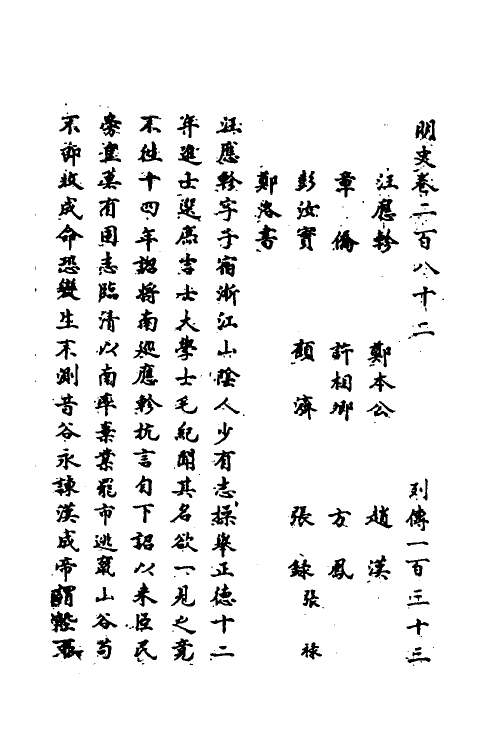 明史卷二百八十二 列傳一百三十三
汪應軫 鄭本公 趙漢
章僑 許相卿 方鳳
彭汝寔 顧濟 張錄張祿
鄭洛書
汪應軫字子宿浙江山陰人少有志操舉正德十二
年進士選庶吉士大學士毛紀聞其名欲一見之竟
不往十四年詔將南廵應軫抗言自下詔以來臣民
旁皇莫有固志臨清以南率棄業罷市逃竄山谷苟
不即收成命恐變生不測昔谷永諫漢成帝謂